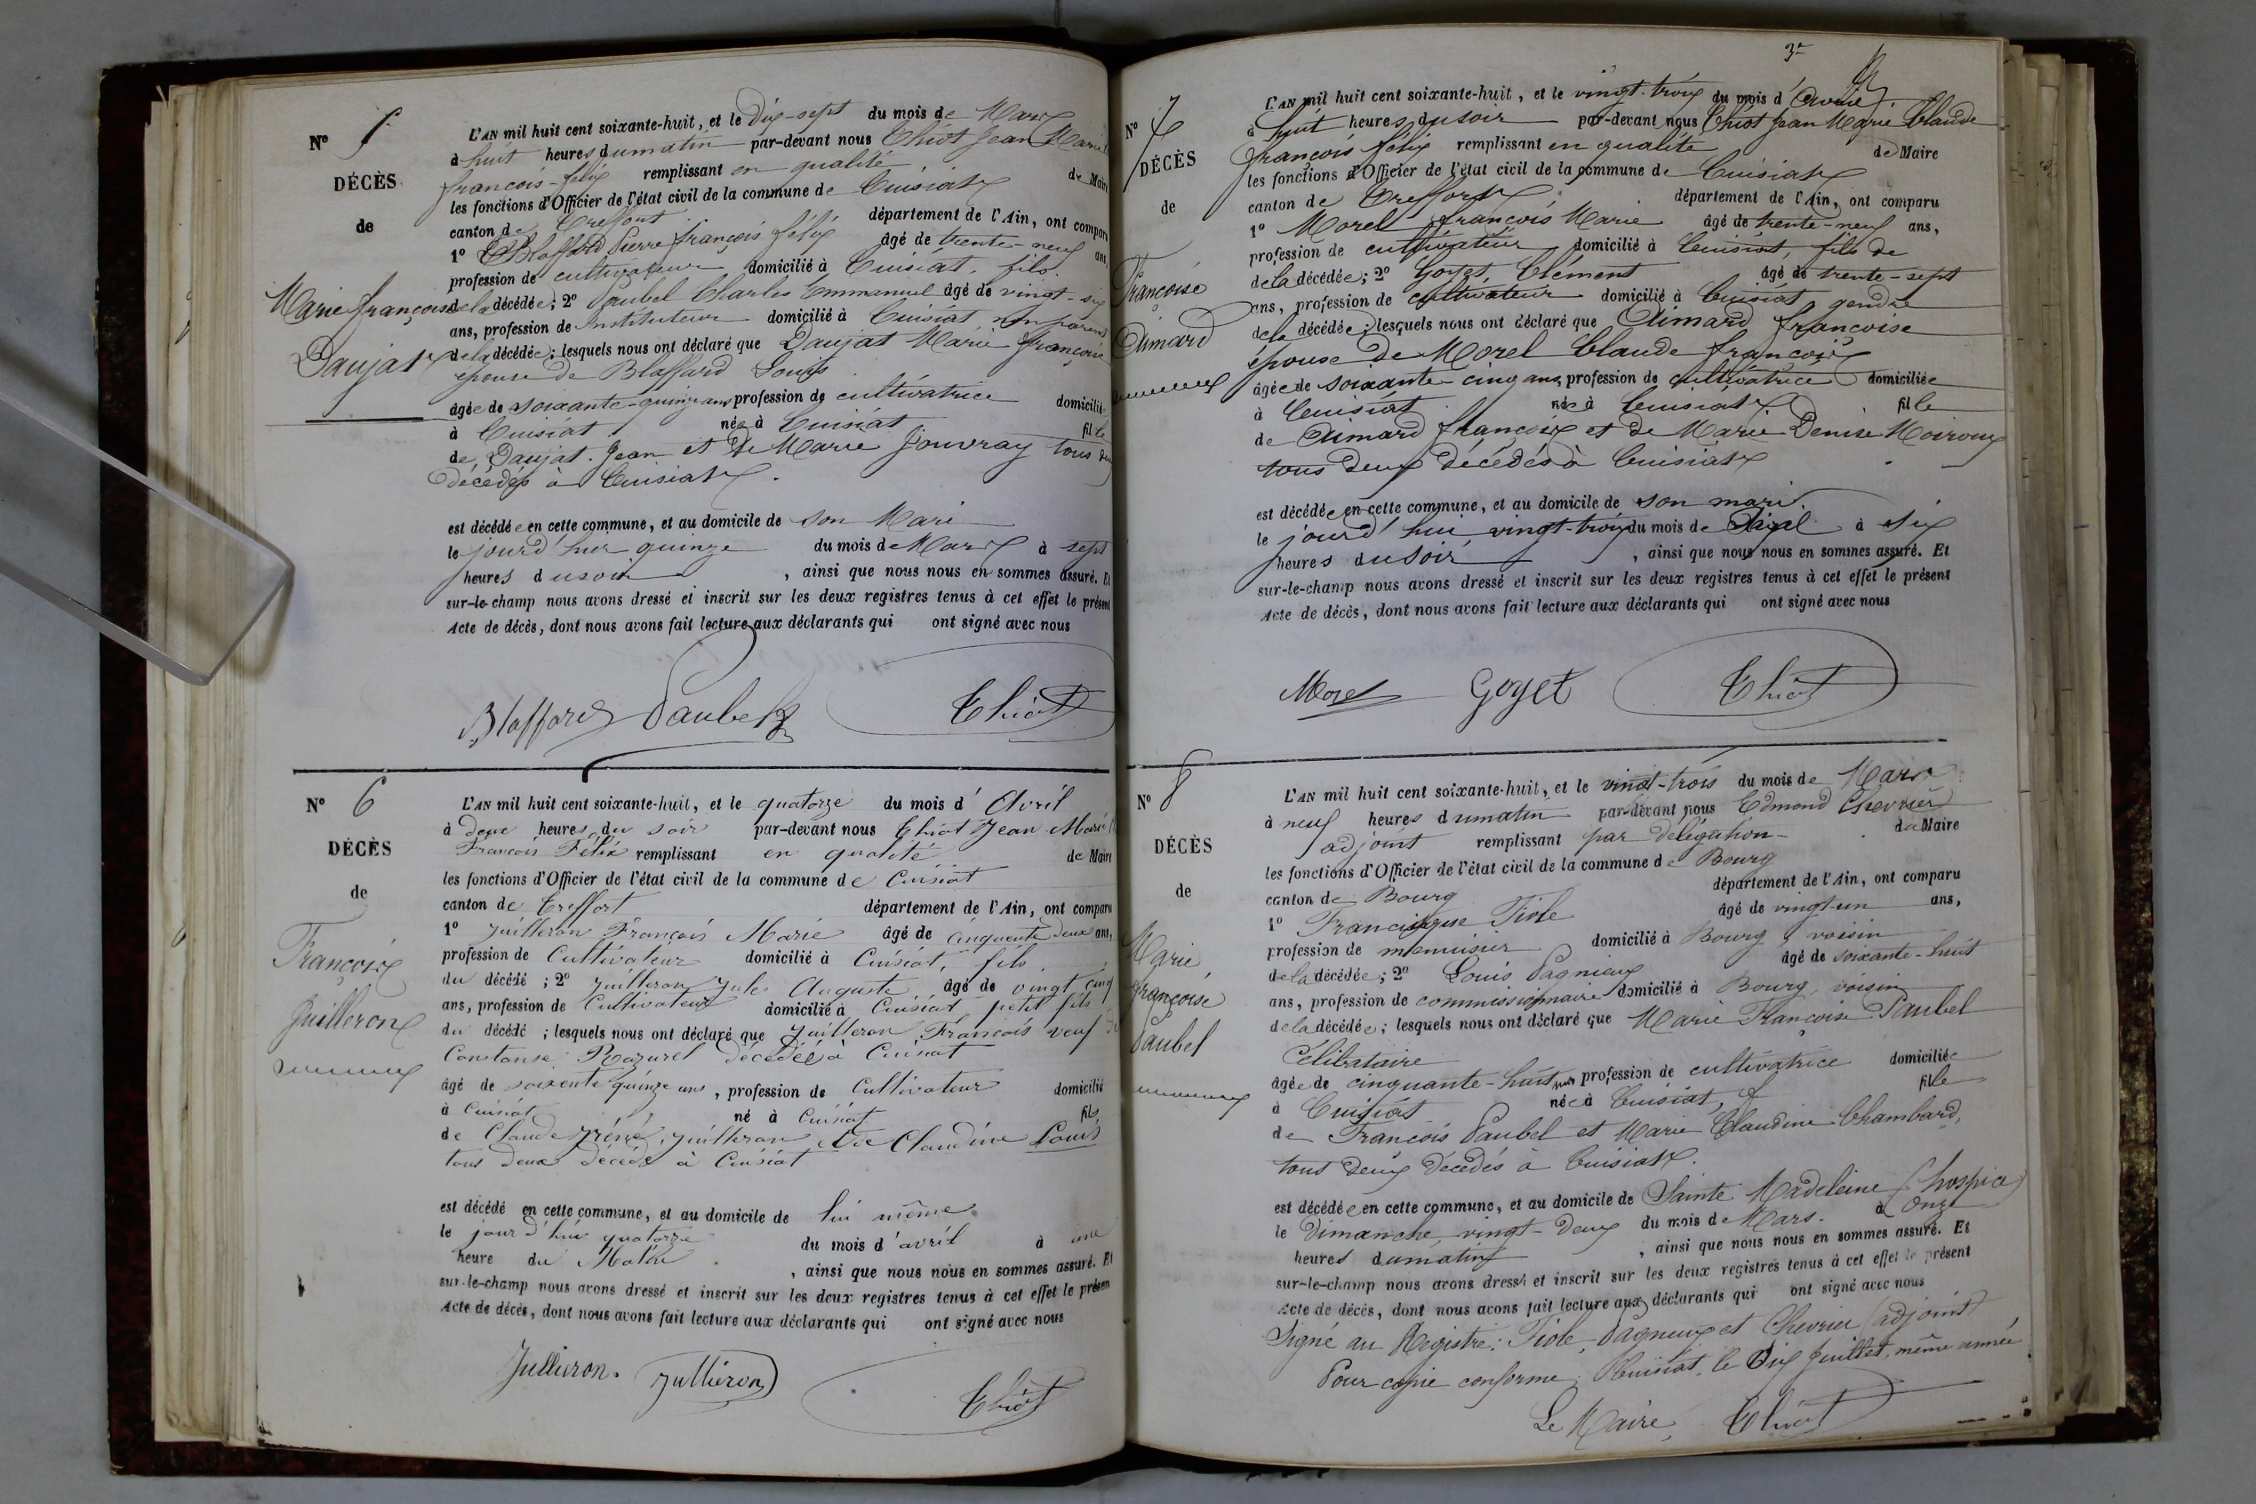 Nº 5
DÉCÈS
de
Marie françoise
Daujat
L'AN mil huit cent soixante-huit, et le Dix-sept du mois de Mars
à huit heures du matin par-devant nous Thiot Jean Marie
françois-félix remplissant en qualité de Maire
les fonctions d'Officier de l'état civil de la commune de Cuisiat
canton de Treffort département de l'Ain, ont comparu
1º Blaffard Pierre françois félix âgé de trente-neuf ans,
profession de cultivateur domicilié à Cuisiat, fils
de la décédée; 2º Paubel Charles Emmanuel âgé de vingt-six
ans, profession de Instituteur domicilié à Cuisiat non parent
de la décédée; lesquels nous ont déclaré que Daujat Marie françoise
épouse de Blaffard Louis
âgée de soixante-quinze ans profession de cultivatrice domiciliée
à Cuisiat née à Cuisiat fille
de Daujat Jean et de Marie Jouvray tous deux
décédés à Cuisiat.
est décédée en cette commune, et au domicile de son Mari
le jourd'hier quinze du mois de Mars à sept
heures du soir, ainsi que nous nous en sommes assuré. Et
sur-le-champ nous avons dressé et inscrit sur les deux registres tenus à cet effet le présent
Acte de décès, dont nous avons fait lecture aux déclarants qui ont signé avec nous
Blaffard Paubel Thiot
Nº 6
DÉCÈS
de
François
Juilleron
L'AN mil huit cent soixante-huit, et le quatorze du mois d'Avril
à deux heures du soir par-devant nous Thiot Jean Marie
François Félix remplissant en qualité de Maire
les fonctions d'Officier de l'état civil de la commune de Cuisiat
canton de Treffort département de l'Ain, ont comparu
1º Juilleron François Marie âgé de cinquante deux ans,
profession de Cultivateur domicilié à Cuisiat, fils
du décédé; 2º Juilleron Jules Auguste âgé de vingt cinq
ans, profession de Cultivateur domicilié à Cuisiat petit fils
du décédé; lesquels nous ont déclaré que Juilleron François veuf de
Constanse Razurel décédée à Cuisiat
âgé de soixente quinze ans, profession de Cultivateur domicilié
à Cuisiat né à Cuisiat fils
de Claude Juilleron et de Claudine Louis
tous deux décédé à Cuisiat
est décédé en cette commune, et au domicile de lui même
le jour d'hui quatorze du mois d'avril à une
heure du Matin, ainsi que nous nous en sommes assuré. Et
sur-le-champ nous avons dressé et inscrit sur les deux registres tenus à cet effet le présent
Acte de décès, dont nous avons fait lecture aux déclarants qui ont signé avec nous
Jullieron. Jullieron Thiot
Nº 7
DÉCÈS
de
Françoise
Aimard
L'AN mil huit cent soixante-huit, et le vingt-trois du mois d'Avril
à huit heures du soir par-devant nous Thiot Jean Marie Claude
françois félix remplissant en qualité de Maire
les fonctions d'Officier de l'état civil de la commune de Cuisiat
canton de Treffort département de l'Ain, ont comparu
1º Morel françois Marie âgé de trente-neuf ans,
profession de cultivateur domicilié à Cuisiat, fils de
de la décédée; 2º Goyet, Clément âgé de trente-sept
ans, profession de cultivateur domicilié à Cuisiat, gendre
de la décédée; lesquels nous ont déclaré que Aimard françoise
épouse de Morel Claude françois
âgée de soixante-cinq ans, profession de cultivatrice domiciliée
à Cuisiat née à Cuisiat fille
de Aimard françois et de Marie Denise Moiroux
tous deux décédés à Cuisiat
est décédée en cette commune, et au domicile de son mari
le jourd'hui vingt-trois du mois de Avril à six
heures du soir, ainsi que nous nous en sommes assuré. Et
sur-le-champ nous avons dressé et inscrit sur les deux registres tenus à cet effet le présent
Acte de décès, dont nous avons fait lecture aux déclarants qui ont signé avec nous
Morel Goyet Thiot
Nº 8
DÉCÈS
de
Marie
françoise
Paubel
L'AN mil huit cent soixante-huit, et le vingt-trois du mois de Mars
à neuf heures du matin par-devant nous Edmond Chevrier
adjoint remplissant par délégation du Maire
les fonctions d'Officier de l'état civil de la commune de Bourg
canton de Bourg département de l'Ain, ont comparu
1º Francisque Tiole âgé de vingt-un ans,
profession de menuisier domicilié à Bourg, voisin
de la décédée; 2º Louis Pagnieux âgé de soixante-huit
ans, profession de commissionnaire domicilié à Bourg, voisin
de la décédée; lesquels nous ont déclaré que Marie Françoise Paubel
Célibataire
âgée de cinquante-huit ans profession de cultivatrice domiciliée
à Cuisiat née à Cuisiat, fille
de François Paubel et Marie Claudine Chambard,
tous deux décédés à Cuisiat.
est décédée en cette commune, et au domicile de Sainte Madeleine (hospice)
le Dimanche, vingt-deux du mois de Mars. à Onze
heures du matin, ainsi que nous nous en sommes assuré. Et
sur-le-champ nous avons dressé et inscrit sur les deux registres tenus à cet effet le présent
Acte de décès, dont nous avons fait lecture aux déclarants qui ont signé avec nous
Signé au Registre: Tiole, Pagneux et Chevrier (adjoint)
Pour copie conforme, Cuisiat, le Dix Juillet, même année
Le Maire, Thiot